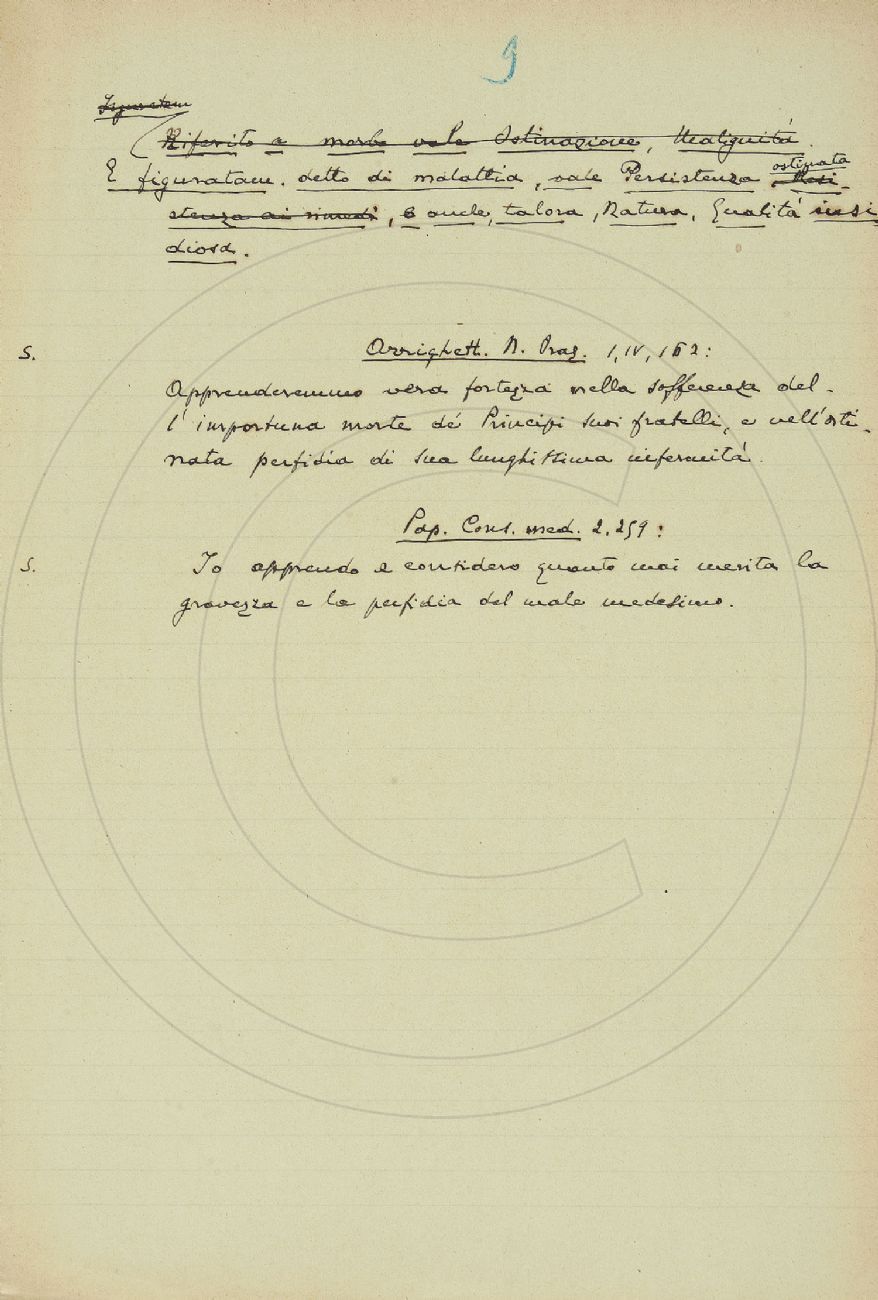 9
Figuratam
Riferito a morbo vale Ostinazione, Malignità.
ostinata
E figuratam. detto di malattia, vale Persistenza, Resi-
stenza ai rimedi, e anche, talora, Natura, Qualità insi
diosa.
S. Arrighett. N. Pros. 1, IV, 162:
Apprenderemmo vera fortezza nella sofferenza del-
l'importuna morte de' Principi suoi fratelli, e nell'osti-
nata perfidia di sua lunghissima infermità.
Pap. Cons. med. 2.259:
S. Io apprendo e considero quanto mai merita la
gravezza e la perfidia del male medesimo.